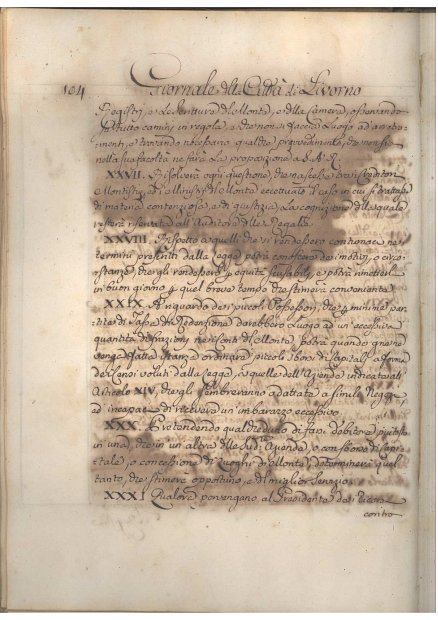 104 Giornale della Città di Livorno
Registri, e le Scritture del Monte, e della Camera, osservando
se tutto cammini in regola, e che non si faccia luogo ad arbitri
menti, e trovando necessario qualche provvedimento, che non sia
nella sua facoltà ne farà la proposizione a S. A. R.
XXVII. Risolverà ogni questione, che nascesse tra i Creditori
Montisti, ed i Ministri del Monte eccettuato il caso in cui si trattasse
di materia contenziosa, e di giustizia, la cognizione della quale
resterà riservata all'Auditore delle Regalie
XXVIII. Rispetto a quelli che si rendessero contumaci ne
termini prefissi dalla Legge potrà conoscere dei motivi, o circo
stanze, che gli rendessero p equità scusabili, e potrà rimetterli
in buon giorno p quel breve tempo che stimerà conveniente
XXIX. A riguardo dei piccoli Possessori, che p minime par
tite di Tasse di Redenzione darebbero luogo ad un'eccessiva
quantità di frazioni nei Conti del Monte, potrà quando gliene
venga fatta istanza ordinare piccole somme di Capitali a forma
dei Censi voluti dalla Legge, o quelle dell'Aziende indicate all'
Articolo XIV, che gli sembreranno adattate a simile Regga,
ed incapace di ricevere un imbarazzo eccessivo
XXX. Pretendendo qualcheduno di farsi debitore piuttosto
in una, che in un altra delle sud.e Aziende, o con sborso di Capi
tale, o concessione di Luoghi di Monte, determinerà quel
tanto, che stimerà opportuno, e di miglior Servizio
XXXI. Qualora pervengano al Presidente dei Ricorsi
contro